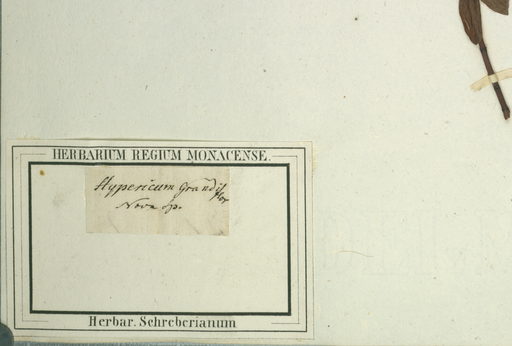 HERBARIUM REGIUM MONACENSE.
Hypericum Grandiflor
Nova Sp.
Herbar. Schreberianum